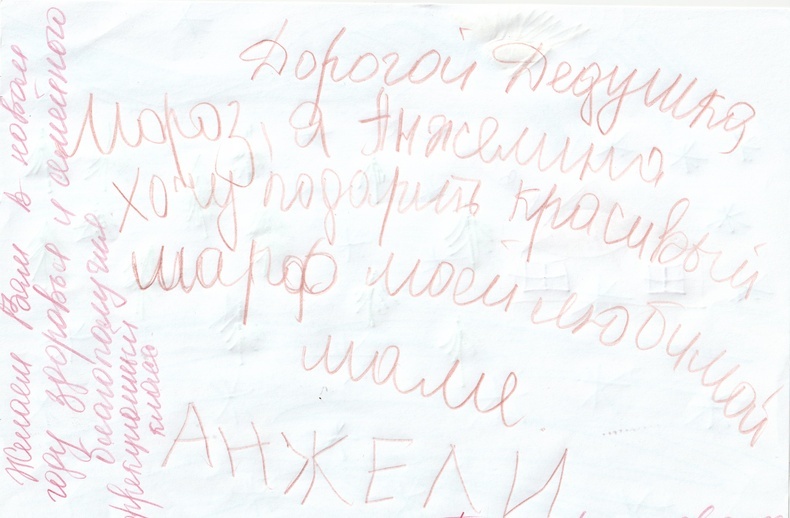 Дорогой Дедушка
Мороз, я Анжелина
хочу подарить красивый
шарф моей любимой
маме
АНЖЕЛИ
Желаем Вам в новом
году здоровья и семейного
благополучия
ррекционный
класс